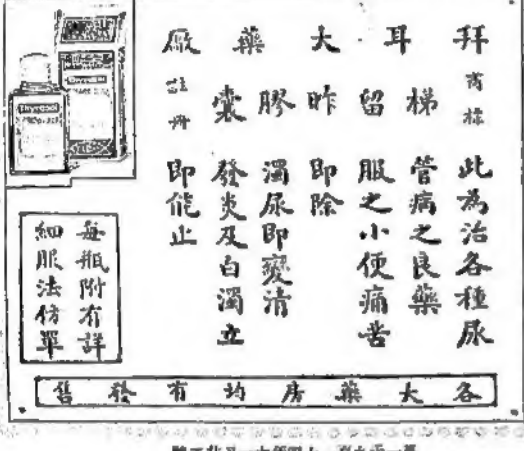 拜耳大藥廠
商標
梯留昨膠囊
註冊
此為治各種尿
管病之良藥
服之小便痛苦
即除
濁尿即變清
發炎及白濁立
即能止
每瓶附有詳
細服法仿單
各大藥房均有發售